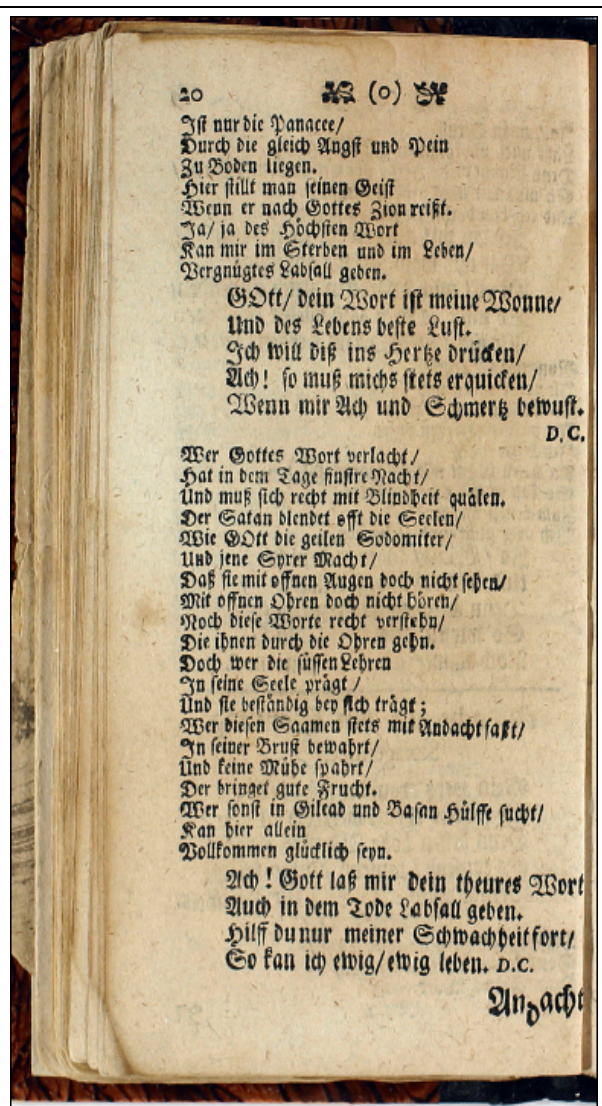 20 (0)
Ist nur die Panacee/
Durch die gleich Angst und Pein
Zu Boden liegen.
Hier stillt man seinen Geist
Wenn er nach Gottes Zion reißt.
Ja/ ja des Höchsten Wort
Kan mir im Sterben und im Leben/
Vergnügtes Labsall geben.
GOtt/ dein Wort ist meine Wonne/
Und des Lebens beste Lust.
Ich will diß ins Hertze drücken/
Ach! so muß michs stets erquicken/
Wenn mir Ach und Schmertz bewust.
D. C.
Wer Gottes Wort verlacht/
Hat in dem Tage finstre Nacht/
Und muß sich recht mit Blindheit quälen.
Der Satan blendet offt die Seelen/
Wie GOtt die geilen Sodomiter/
Und jene Syrer Macht/
Daß sie mit offnen Augen doch nicht sehen/
Mit offnen Ohren doch nicht hören/
Noch diese Worte recht verstehn/
Die ihnen durch die Ohren gehn.
Doch wer die süssen Lehren
In seine Seele prägt/
Und sie beständig bey sich trägt;
Wer diesen Saamen stets mit Andacht faßt/
In seiner Brust bewahrt/
Und keine Mühe spahrt/
Der bringet gute Frucht.
Wer sonst in Gilead und Basan Hülffe sucht/
Kan hier allein
Vollkommen glücklich seyn.
Ach! Gott laß mir dein theures Wort
Auch in dem Tode Labsall geben.
Hilff du nur meiner Schwachheit fort/
So kan ich ewig/ ewig leben. D.C.
Andacht